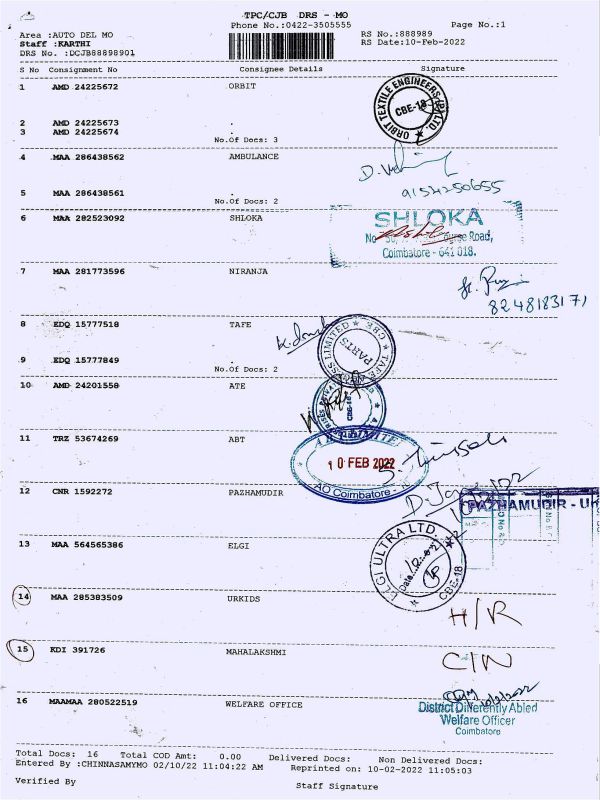 TPC/CJB DRS - MO
Phone No.:0422-3505555 Page No.:1
Area :AUTO DEL MO RS No.:888989
Staff :KARTHI RS Date:10-Feb-2022
DRS No. :DCJB88898901
S No Consignment No Consignee Details Signature
1 AMD 24225672 ORBIT
ORBIT TEXTILE ENGINEERS LTD.
CBE-18
2 AMD 24225673 .
3 AMD 24225674 .
No.Of Docs: 3
4 MAA 286438562 AMBULANCE
9154250655
5 MAA 286438561 .
No.Of Docs: 2
6 MAA 282523092 SHLOKA
SHLOKA
Road,
Coimbatore - 641 018.
7 MAA 281773596 NIRANJA
8248183171
8 EDQ 15777518 TAFE
LIMITED CBE TAFE
PARTS
9 EDQ 15777849 .
No.Of Docs: 2
10 AMD 24201558 ATE
CBE-18
11 TRZ 53674269 ABT
10 FEB 2022
AO Coimbatore
12 CNR 1592272 PAZHAMUDIR
PAZHAMUDIR - 
13 MAA 564565386 ELGI
ELGI ULTRA LTD
Date
CBE-18
14 MAA 285383509 URKIDS
H/R
15 KDI 391726 MAHALAKSHMI
C/N
16 MAAMAA 280522519 WELFARE OFFICE
District Differently Abled
Welfare Officer
Coimbatore
Total Docs: 16 Total COD Amt: 0.00 Delivered Docs: Non Delivered Docs:
Entered By :CHINNASAMYMO 02/10/22 11:04:22 AM Reprinted on: 10-02-2022 11:05:03
Verified By Staff Signature